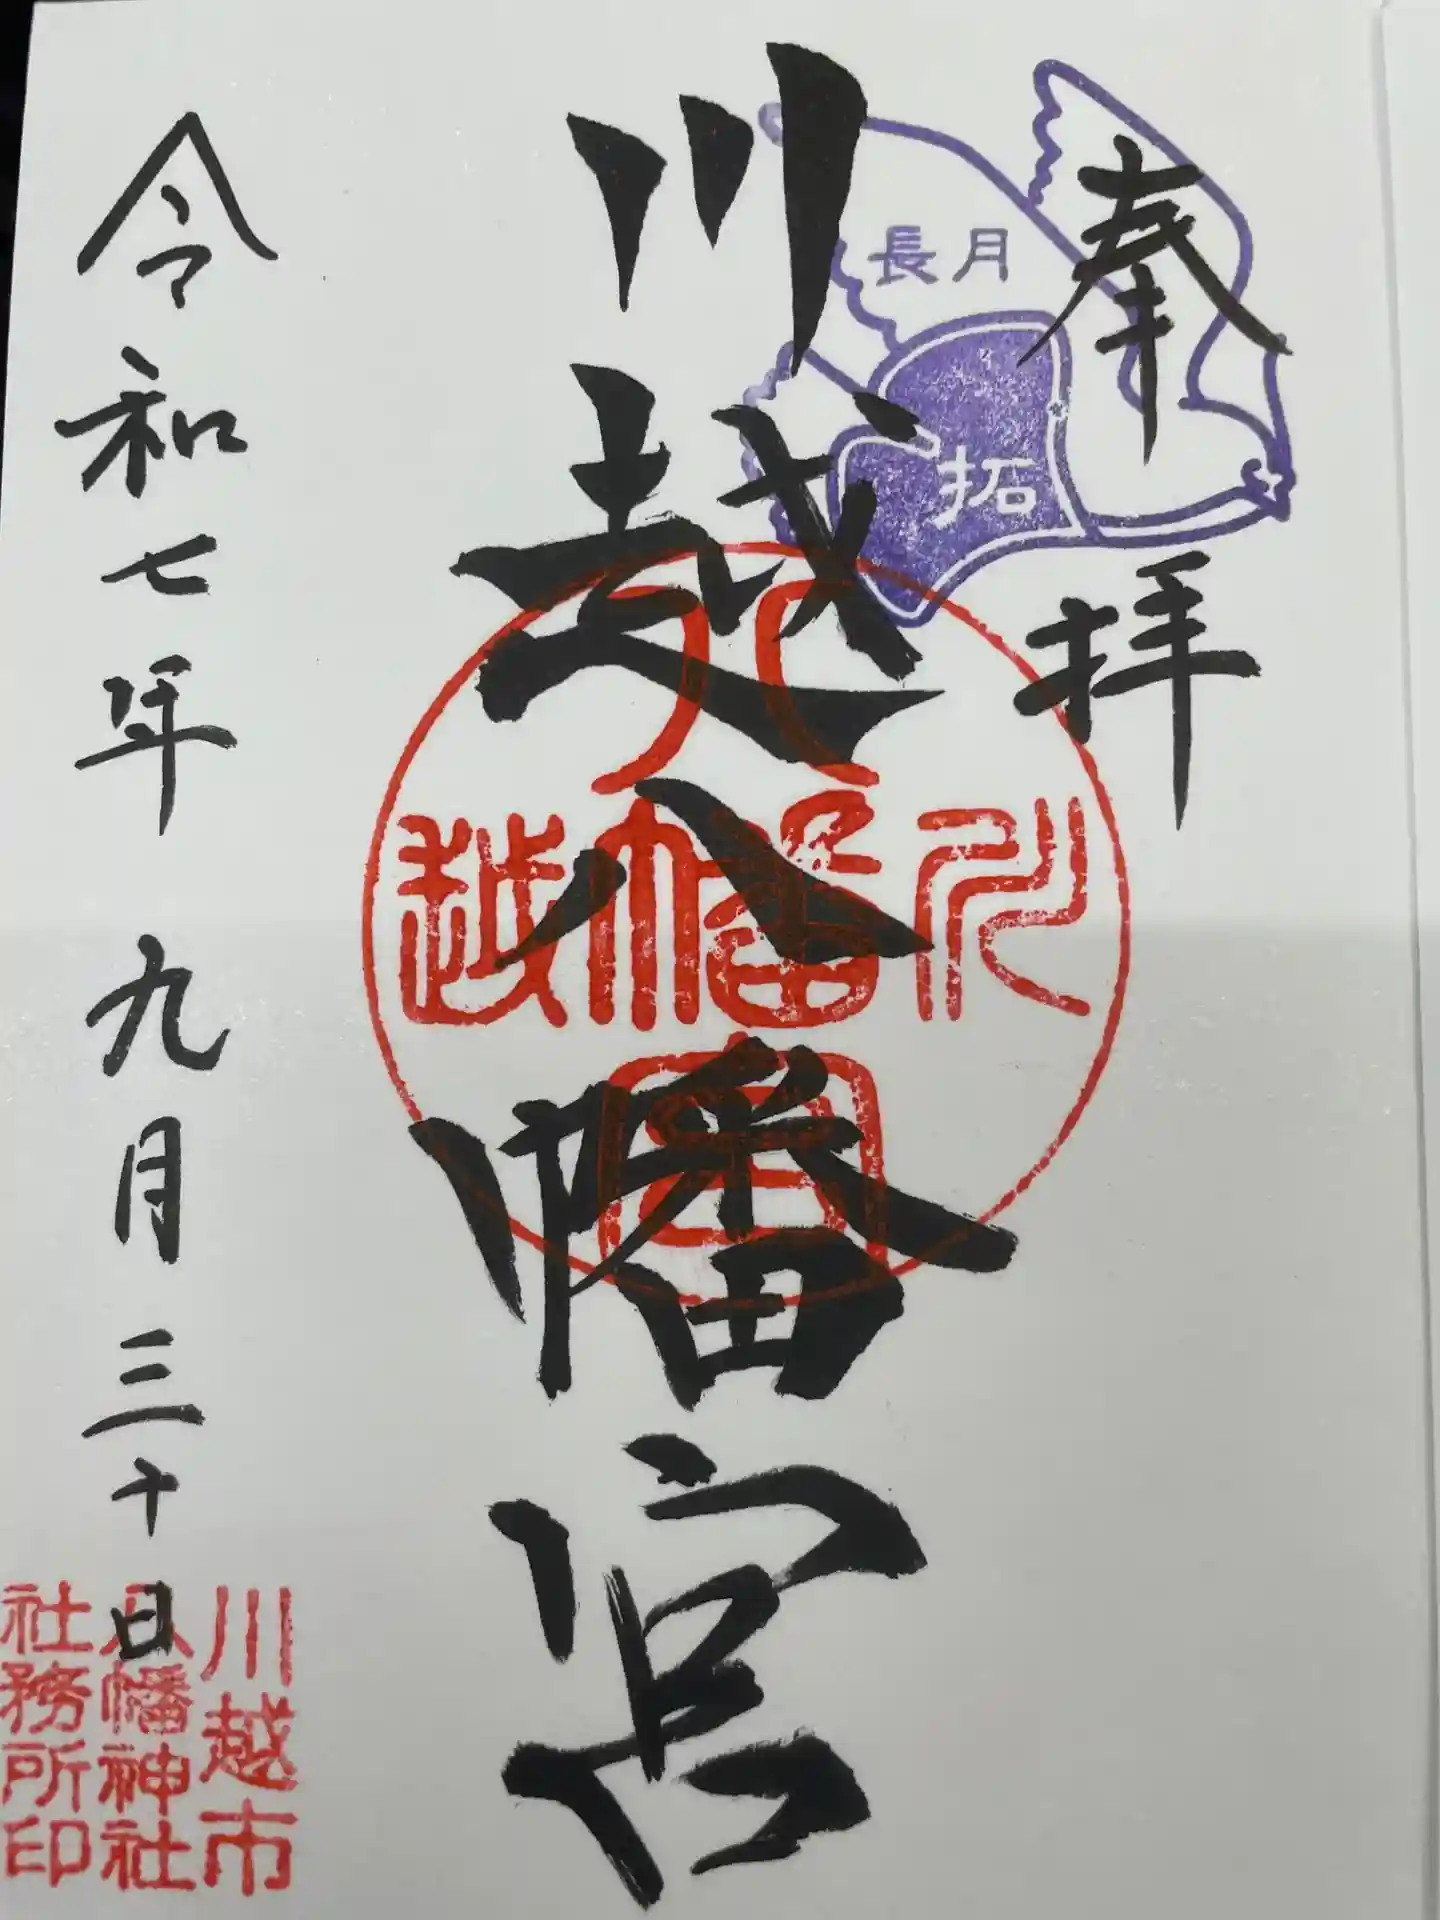 奉拝
長月
拓
川越八幡宮
川越
八幡宮
令和七年九月三十日
川越市
八幡神社
社務所印